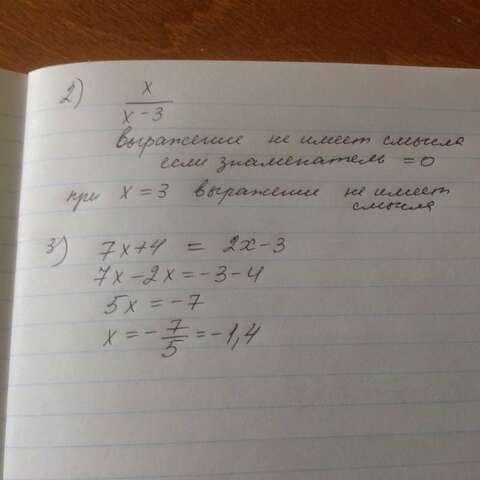 2) x/(x-3)
выражение не имеет смысла
если знаменатель =0
при x=3 выражение не имеет
смысла
3) 7x+4 = 2x-3
7x-2x=-3-4
5x=-7
x=-7/5=-1,4